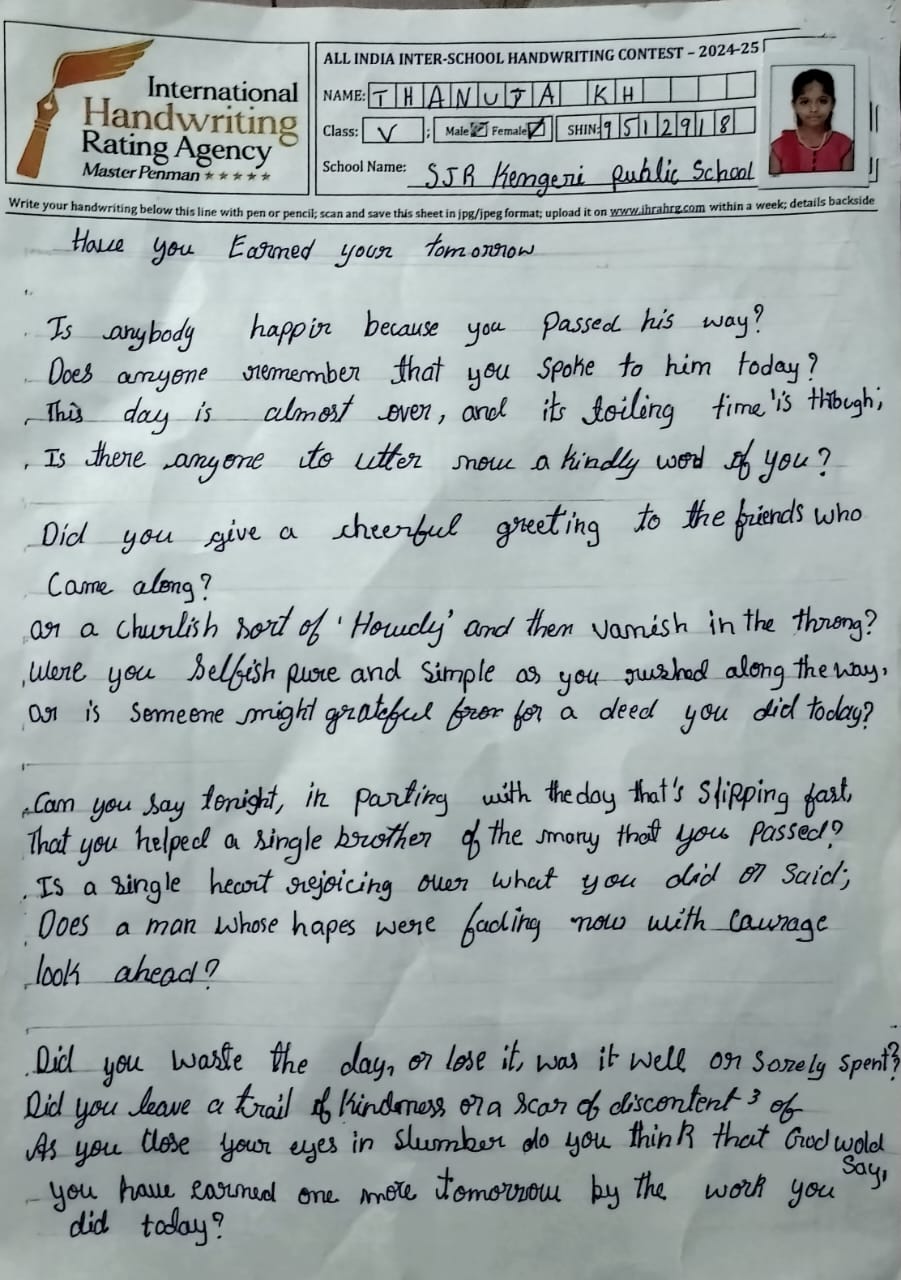 International
Handwriting
Rating Agency
Master Penman ★★★★★
ALL INDIA INTER-SCHOOL HANDWRITING CONTEST – 2024-25
NAME: THANUJA KH
Class: V ; Male Female SHIN: 9512918
School Name: SJR Kengeri Public School
Write your handwriting below this line with pen or pencil; scan and save this sheet in jpg/jpeg format; upload it on www.ihrahrg.com within a week; details backside
Have you Earned your tomorrow
Is anybody happir because you passed his way?
Does anyone remember that you spoke to him today?
This day is almost over, and its toiling time is though;
Is there anyone to utter now a kindly word of you?
Did you give a cheerful greeting to the friends who
Came along?
or a churlish sort of 'Howdy' and then vanish in the throng?
Were you selfish pure and simple as you rushed along the way,
or is someone might grateful for a deed you did today?
Can you say tonight, in parting with the day that's slipping fast,
That you helped a single brother of the many that you passed?
Is a single heart rejoicing over what you did or said;
Does a man whose hapes were fading now with courage
look ahead?
Did you waste the day, or lose it, was it well or sorely spent?
Did you leave a trail of kindness or a scar of discontent 3 of
As you close your eyes in slumber do you think that God wold
Say,
you have earned one more tomorrow by the work you
did today?